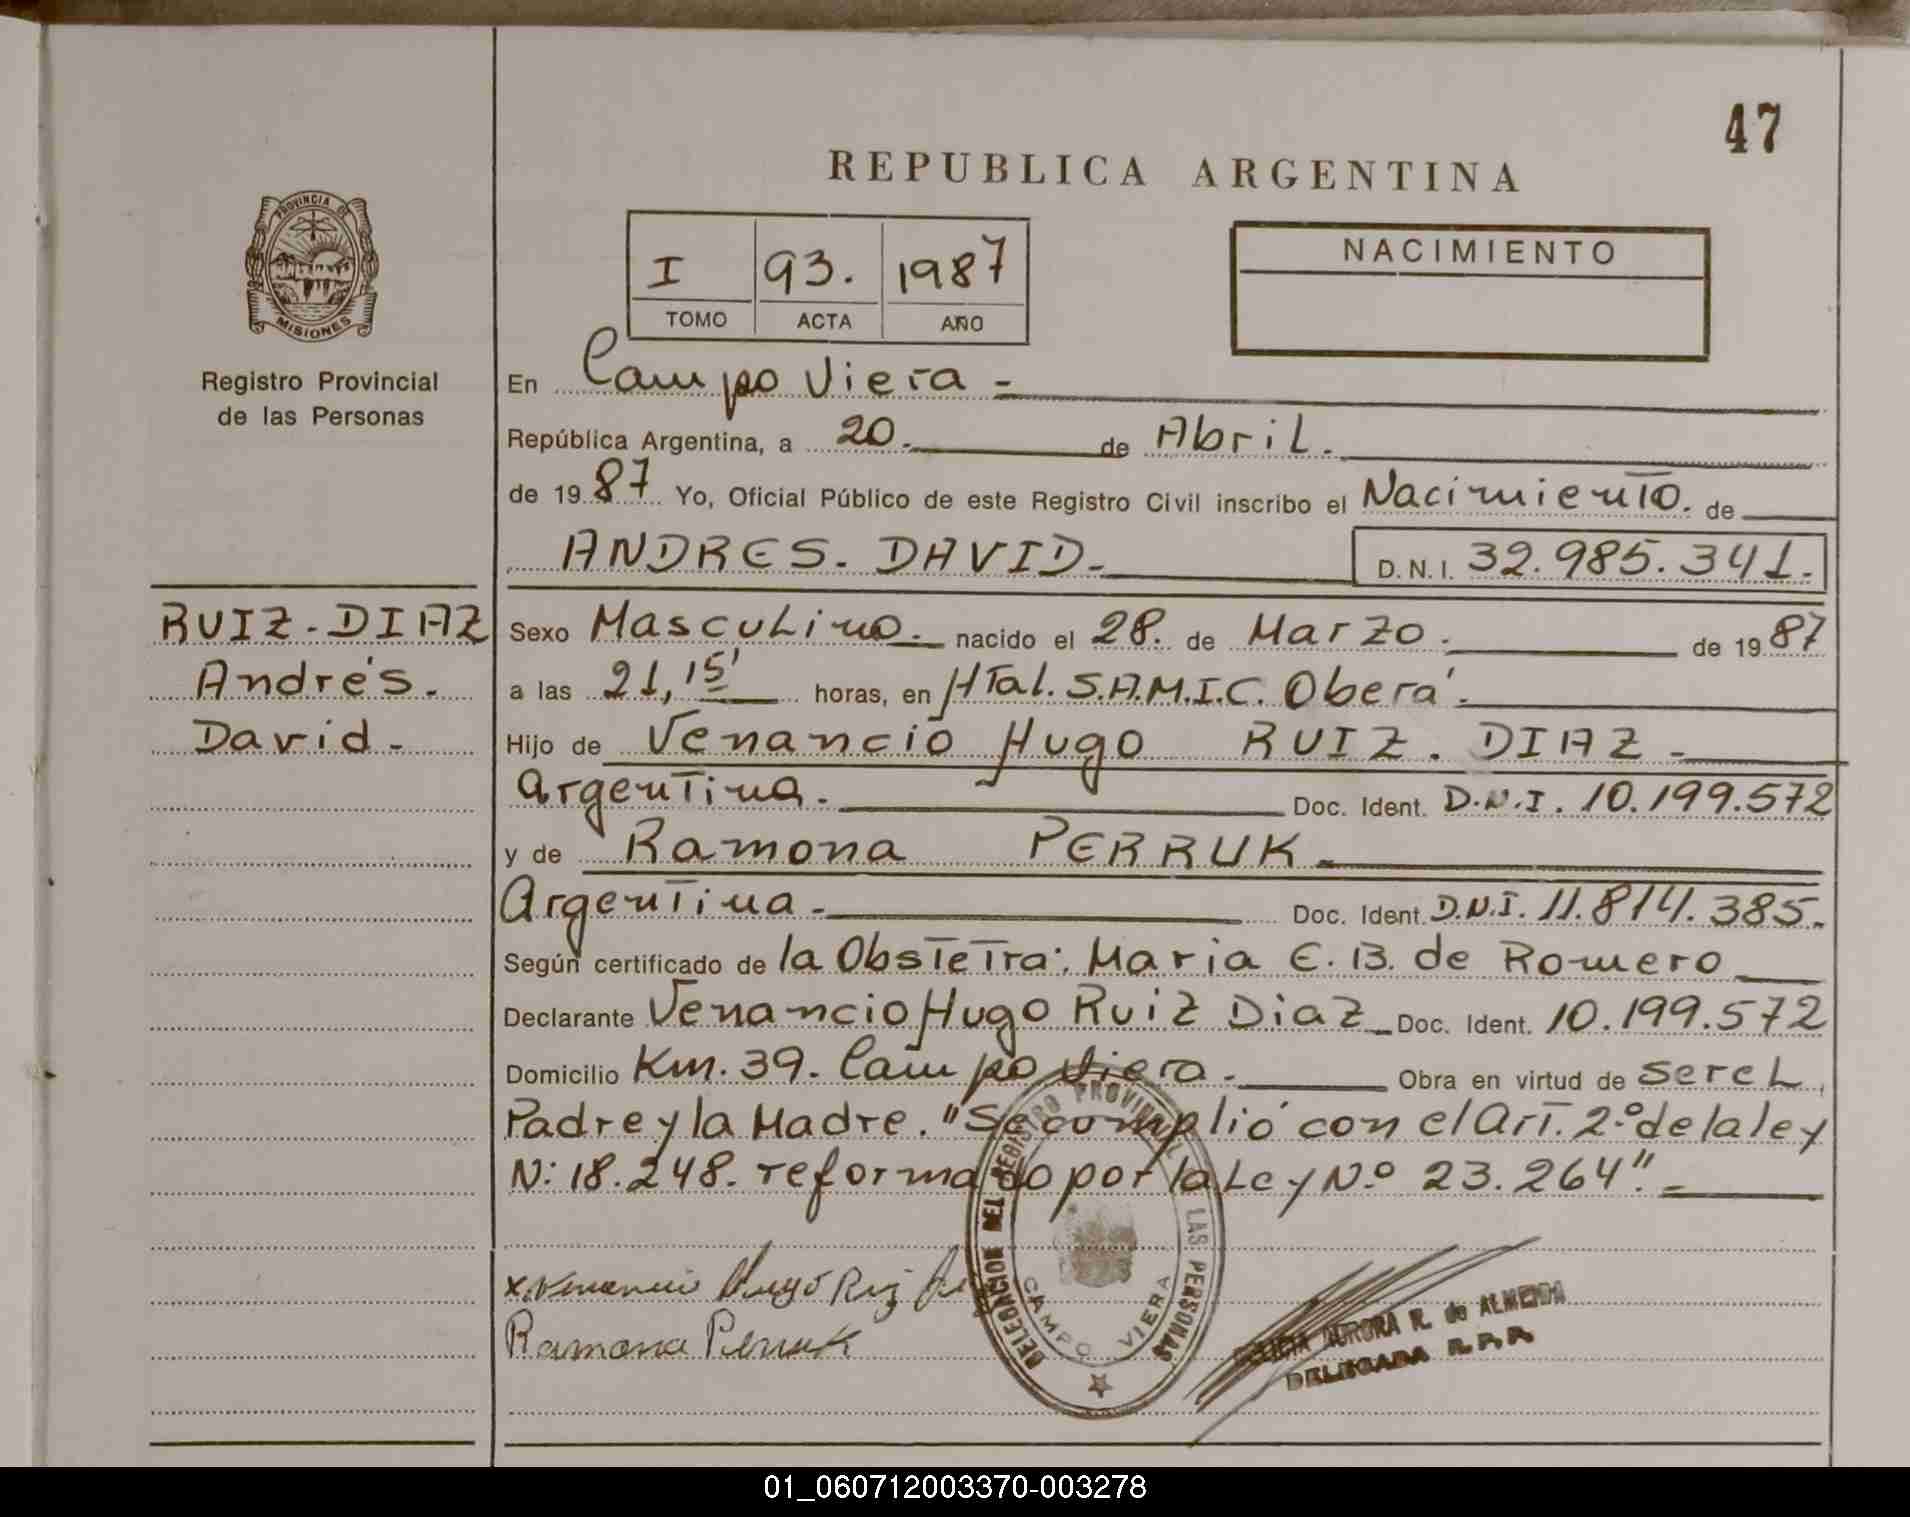 47
REPUBLICA ARGENTINA
PROVINCIA DE
MISIONES
Registro Provincial
de las Personas
I 93. 1987
TOMO ACTA AÑO
NACIMIENTO
En Campo Viera -
República Argentina, a 20. de Abril.
de 1987 Yo, Oficial Público de este Registro Civil inscribo el Nacimiento. de
ANDRES. DAVID.-
D.N.I. 32.985.341.
RUIZ-DIAZ
Andrés.
David.-
Sexo Masculino. nacido el 28. de Marzo. de 1987
a las 21,15' horas, en Htal. S.A.M.I.C. Oberá.
Hijo de Venancio Hugo RUIZ. DIAZ -
Argentina. Doc. Ident. D.N.I. 10.199.572
y de Ramona PERRUK -
Argentina - Doc. Ident. D.N.I. 11.814.385.
Según certificado de la Obstetra: Maria E. B. de Romero
Declarante Venancio Hugo Ruiz Diaz Doc. Ident. 10.199.572
Domicilio Km. 39. Campo Viera. Obra en virtud de ser el
Padre y la Madre. "Se cumplió con el Art. 2º de la ley
N: 18.248. reformado por la Ley Nº 23.264".
x Venancio Hugo Ruiz
Ramona Perruk
DELEGACION DEL REGISTRO PROVINCIAL LAS PERSONAS
CAMPO VIERA
AURORA R. de ALMEIDA
DELEGADA R.P.P.
01_060712003370-003278